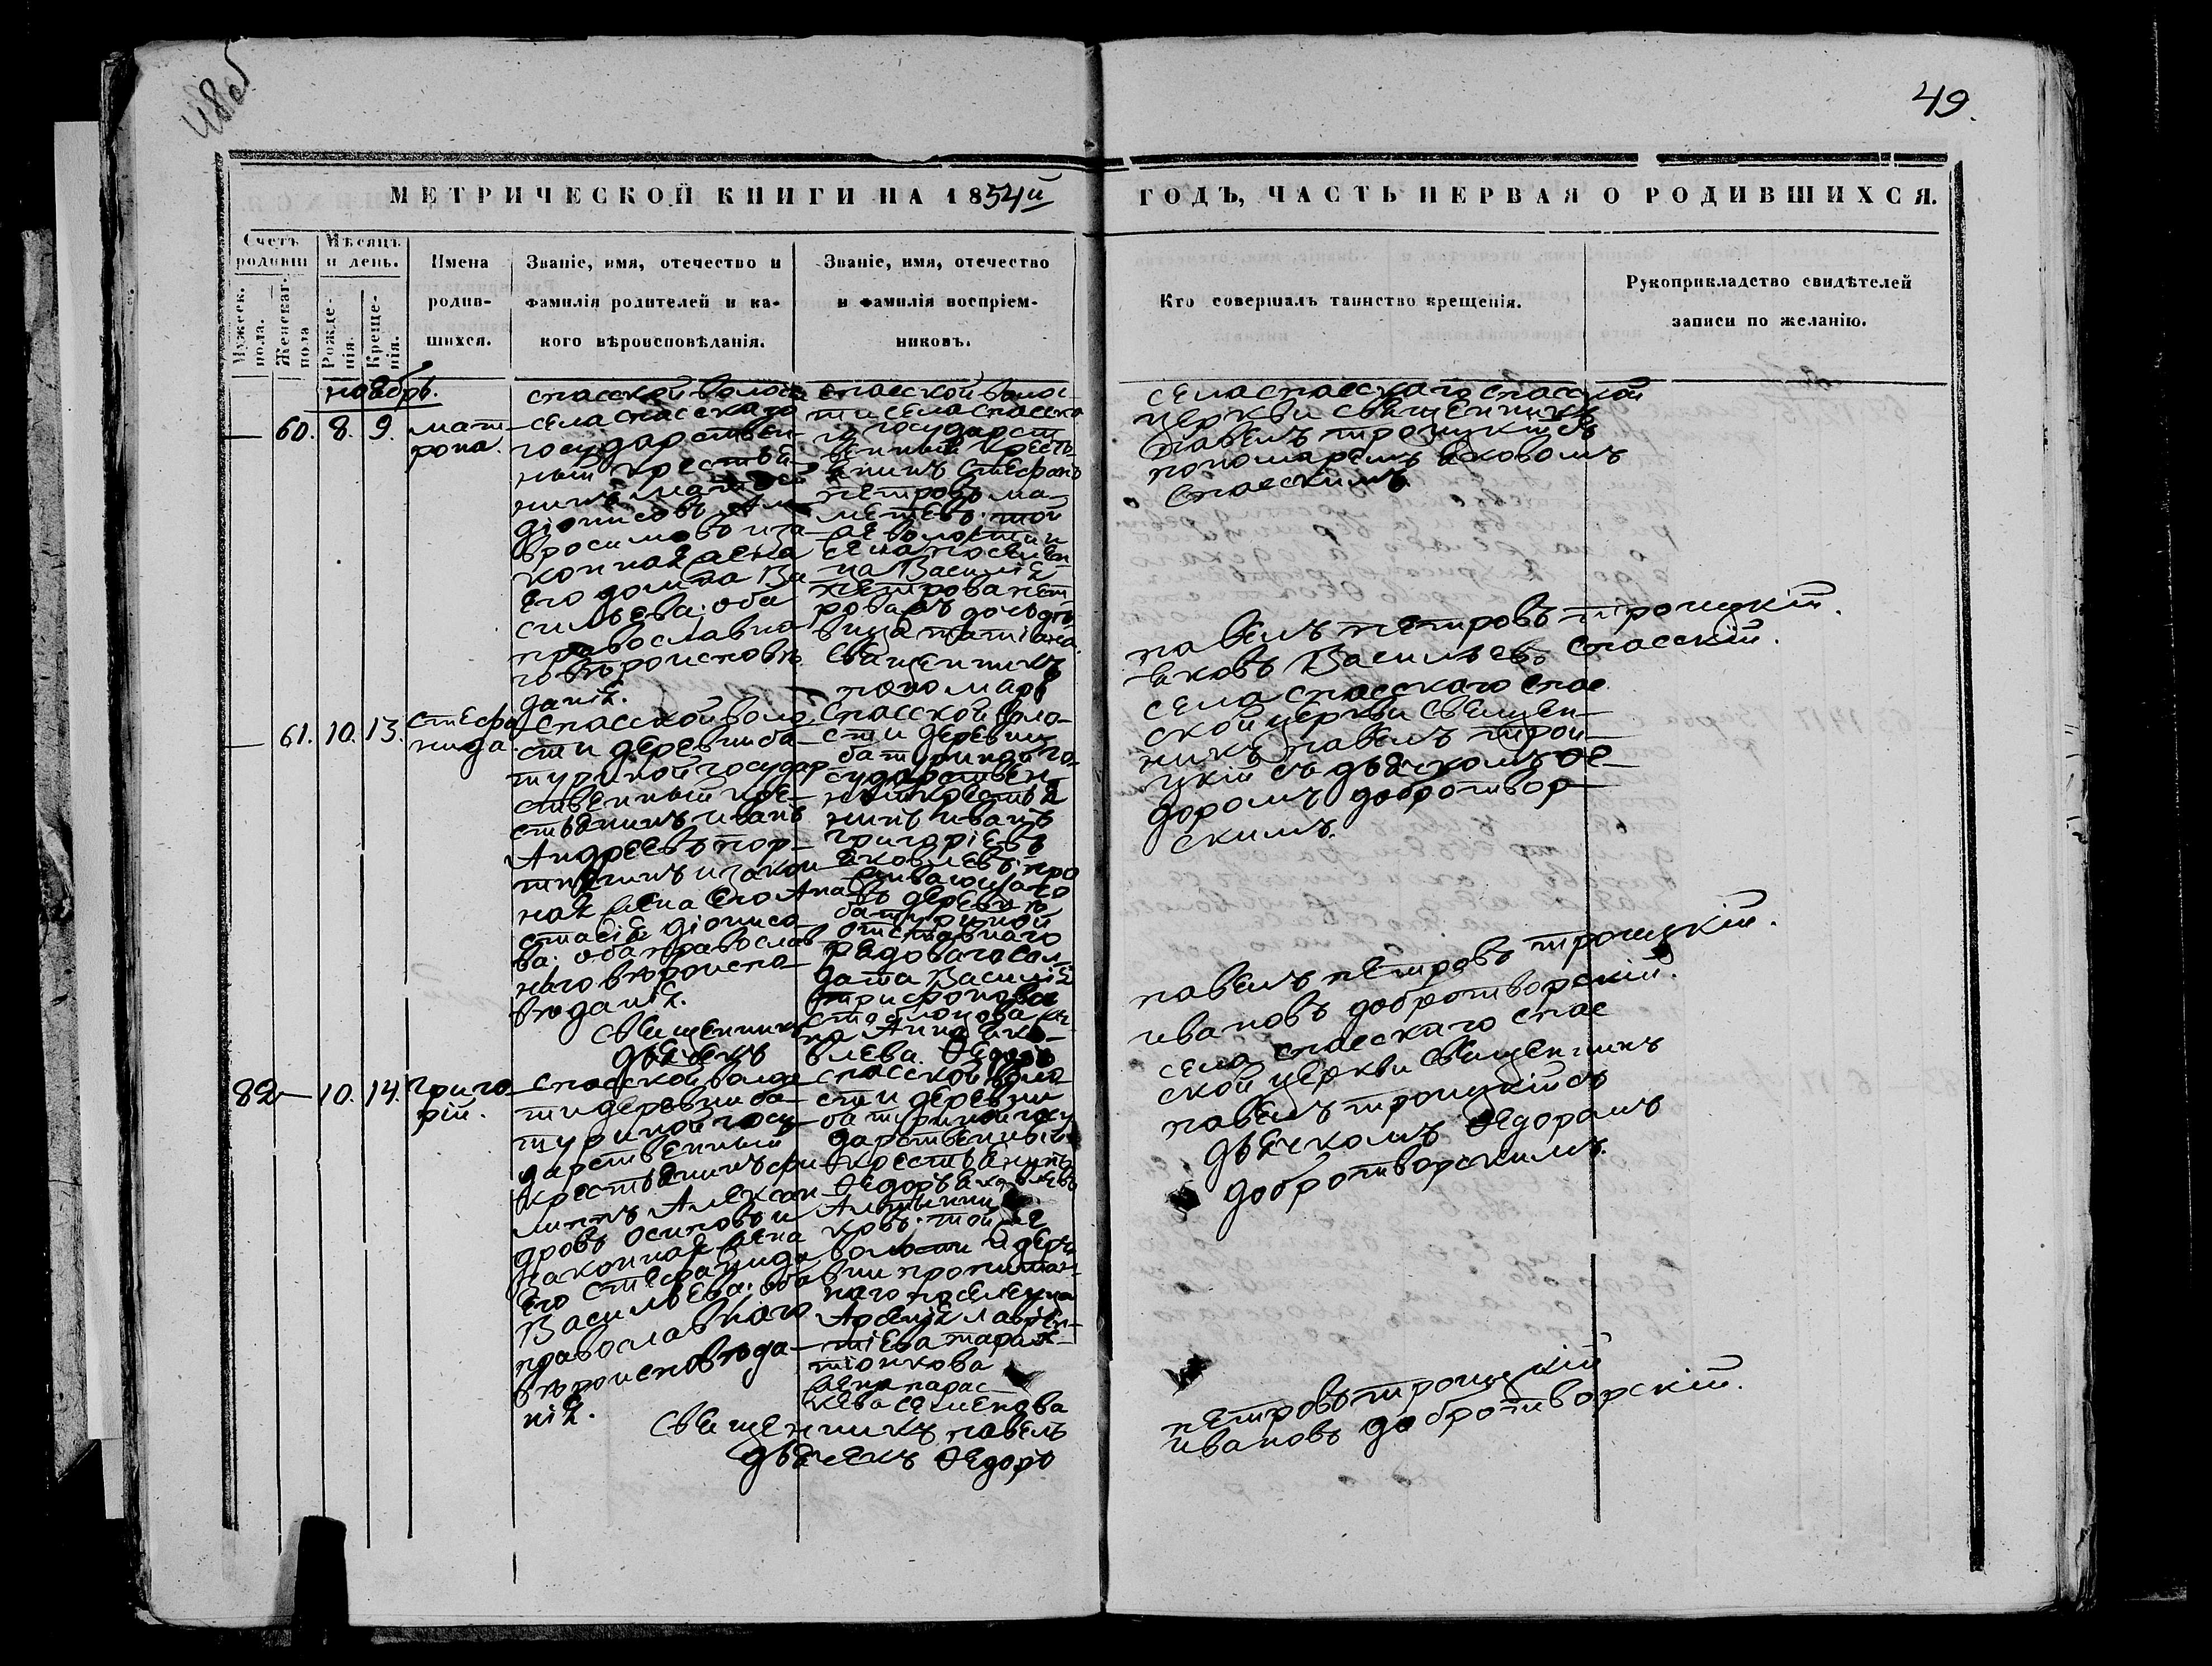 48 об
49.
МЕТРИЧЕСКОЙ КНИГИ НА 1854й
ГОДЪ, ЧАСТЬ ПЕРВАЯ О РОДИВШИХСЯ.
Счетъ родивш
Мужеск. пола.
Женскаг. пола
Мѣсяцъ и день.
Рожденія.
Крещенія.
Имена
родив-
шихся.
Званіе, имя, отечество и
фамилія родителей и ка-
кого вѣроисповѣданія.
Званіе, имя, отечество
и фамилія воспріем-
никовъ.
Кто совершалъ таинство крещенія.
Рукоприкладство свидѣтелей
записи по желанію.
ноябрь.
— 60. 8. 9.
мат-
рона.
спасской волос
села спасскаго
государствен-
ный крестья-
нинъ
діонисовъ Ам-
вросимовъ и за-
конная жена
его домна Ва
сильева: оба
православна
го вѣроисповѣ
данія.
спасской волос-
ти села спасска
го государст
венный кресть
янинъ Стефанъ
петровъ ма-
метевъ: той
же волости и
села поселен
ца Василія
петрова пет
рова дочь дѣ
вица татіана.
священникъ
пономарь
села спасскаго спасской
церкви священникъ
павелъ троицкій съ
пономаремъ яковомъ
спасскимъ.
павелъ петровъ троицкій.
яковъ Васильевъ спасскій.
— 61. 10. 13.
стефа
нида.
спасской воло
сти деревни ба-
туриной государ
ственный кре-
стьянинъ иванъ
Андреевъ пор-
тнягинъ и закон
ная жена его Ана
стасія діонисо
ва: оба православ
наго вѣроиспо-
вѣданія.
священникъ
дьячекъ
спасской воло-
сти деревни
батуриной го-
сударствен-
ный крестья
нинъ иванъ
григоріевъ
яковлевъ: про
живающаго
въ деревнѣ
батуриной
отставнаго
рядоваго сол
дата Василія
трифонова
же
на Анна яко-
влева. Ѳедоръ
села спасскаго спас
ской церкви священ-
никъ павелъ трои-
цкій съ дьячкомъ Ѳе-
доромъ добротвор-
скимъ.
павелъ петровъ троицкій.
ивановъ добротворскій.
82 — 10. 14.
григо-
рій.
спасской волос
ти деревни ба-
туриной госу
дарственный
крестьянинъ фи
липпъ Алексан
дровъ Осиповъ и
законная жена
его стефанида
Васильева: оба
православнаго
вѣроисповѣда-
нія.
спасской воло
сти деревни
батуриной госу
дарственный
крестьянинъ
Ѳедоръ яковлевъ
ковъ: той же
волости и дере
вни
наго поселенца
Арсенія лаврен-
тіева
жена парас-
кева семенова
священникъ павелъ
дьячекъ Ѳедоръ
села спасскаго спас
ской церкви священникъ
павелъ троицкій съ
дьячкомъ Ѳедоромъ
добротворскимъ.
петровъ троицкій
ивановъ добротворскій.